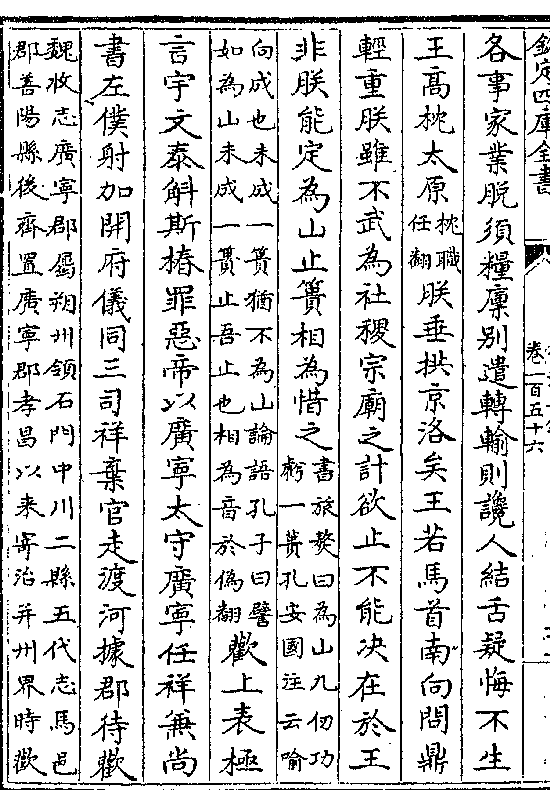 欽定四庫全書
卷一百五十六
各事家業脫須糧廪别遣轉輸則讒人結舌疑悔不生
王高枕太原
枕職
任翻
朕垂拱京洛矣王若馬首南向問鼎
輕重朕雖不武為社稷宗廟之計欲止不能决在於王
非朕能定為山止簣相為惜之
書旅獒曰為山九仞功
虧一簣孔安國注云喻
向成也未成一簣猶不為山論語孔子曰譬
如為山未成一簣止吾止也相為音於偽翻
歡上表極
言宇文泰斛斯椿罪惡帝以廣寧太守廣寧任祥兼尚
書左僕射加開府儀同三司祥棄官走渡河據郡待歡
魏收志廣寧郡屬朔州領石門中川二縣五代志馬邑
郡善陽縣後齊置廣寧郡孝昌以来寄治并州界時歡